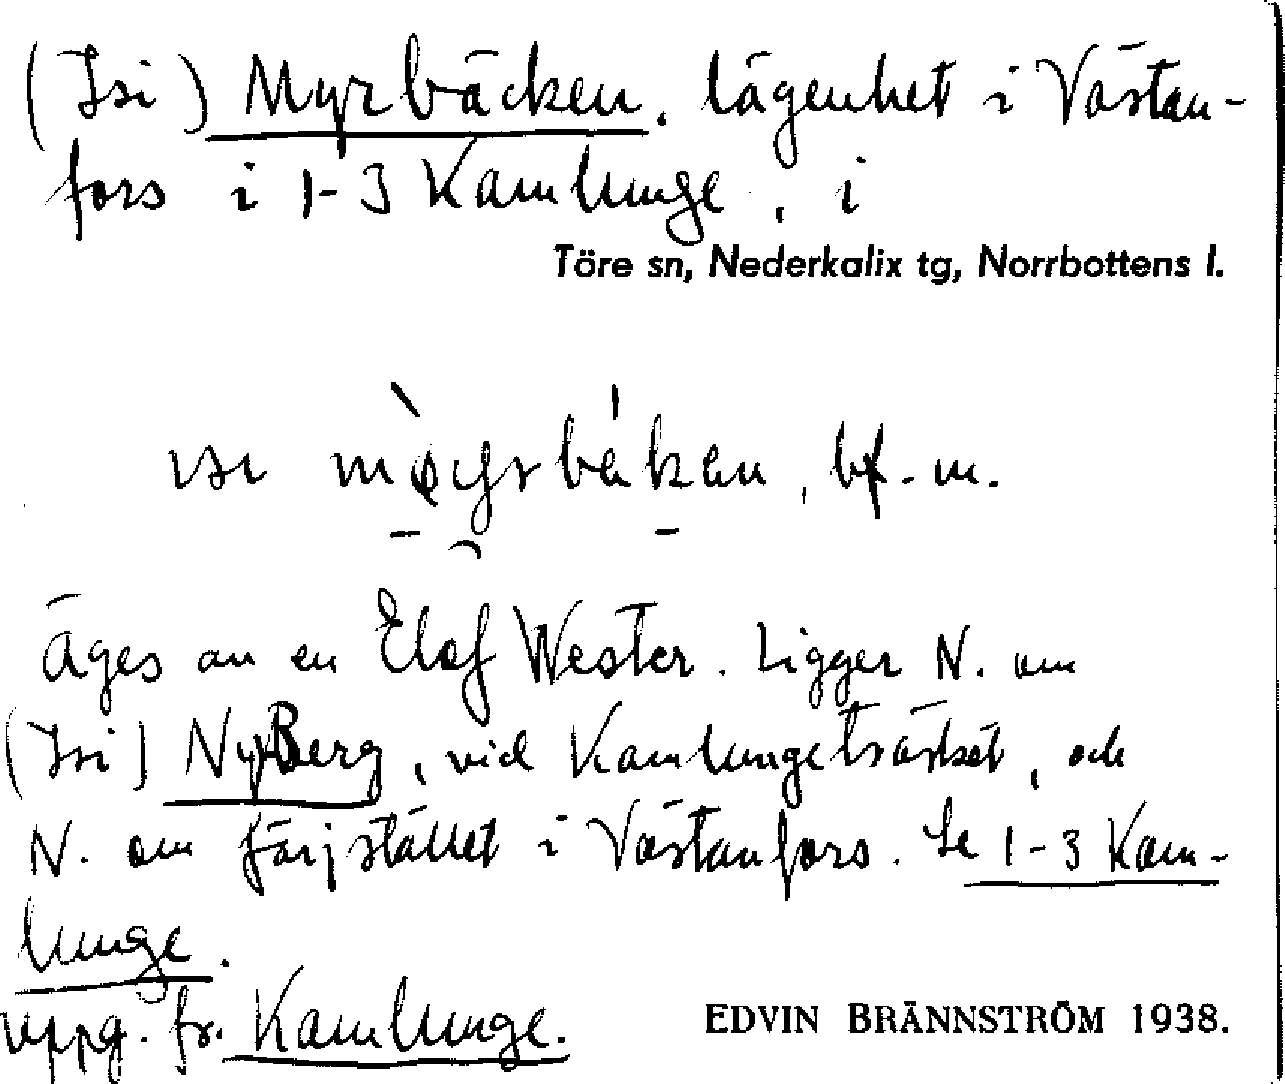 (Isi) Myrbäcken. lägenhet i Västan-
fors i 1-3 Kamlunge, i
Töre sn, Nederkalix tg, Norrbottens l.
bf. m.
äges av en Elof Wester. Ligger N. om
(Isi) Nyberg, vid Kamlungeträsket, och
N. om färjstället i Västanfors. Se 1-3 Kam-
lunge.
uppg. fr. Kamlunge.
EDVIN BRÄNNSTRÖM 1938.